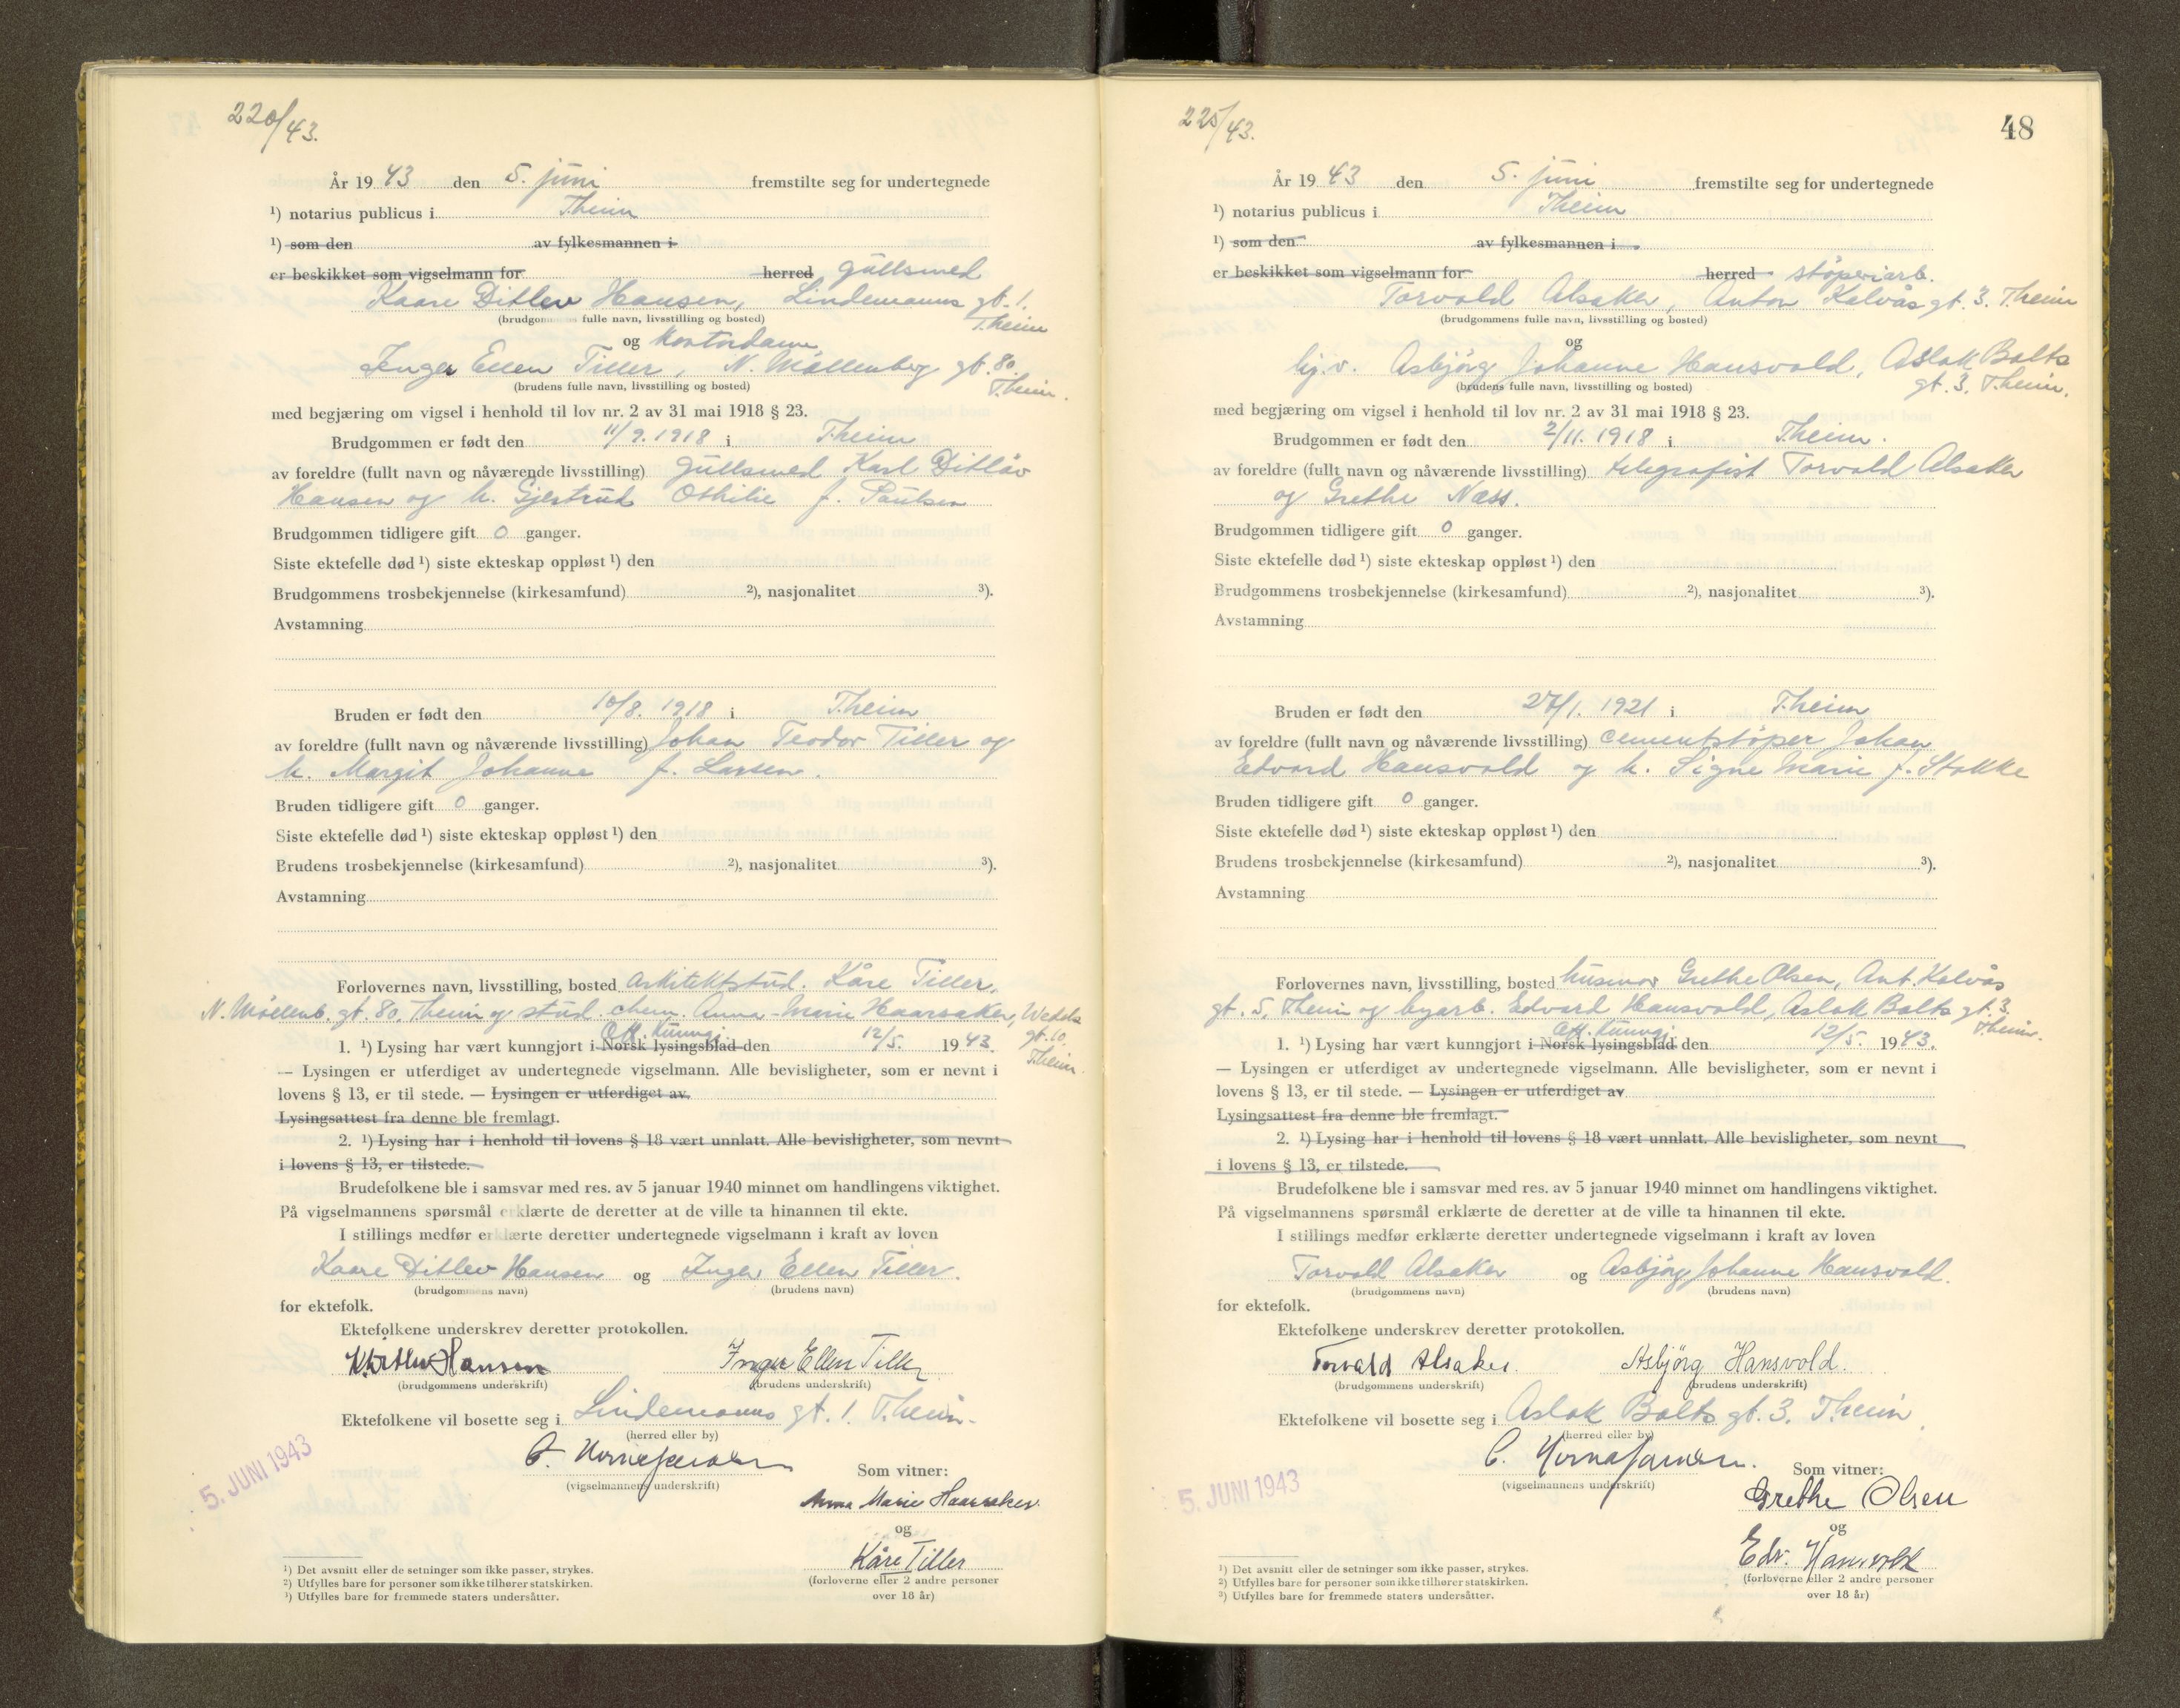 220/43.
År 1943 den 5. juni fremstilte seg for undertegnede
¹) notarius publicus i T.heim
¹) som den av fylkesmannen i
er beskikket som vigselmann for herred gullsmed
Kaare Ditlev Hansen, Lindemanns gt. 1.
(brudgommens fulle navn, livsstilling og bosted) T.heim
og kontordame
Inger Ellen Tiller, N. Möllenberg gt. 80.
(brudens fulle navn, livsstilling og bosted) T.heim.
med begjæring om vigsel i henhold til lov nr. 2 av 31 mai 1918 § 23.
Brudgommen er født den 11/9. 1918 i T.heim
av foreldre (fullt navn og nåværende livsstilling) gullsmed Karl Ditlev
Hansen og h. Gjertrud Othilie f. Paulsen
Brudgommen tidligere gift 0 ganger.
Siste ektefelle død ¹) siste ekteskap oppløst ¹) den
Brudgommens trosbekjennelse (kirkesamfund) ²), nasjonalitet ³).
Avstamning
Bruden er født den 10/8. 1918 i T.heim
av foreldre (fullt navn og nåværende livsstilling) Johan Teodor Tiller og
h. Margit Johanne f. Larsen.
Bruden tidligere gift 0 ganger.
Siste ektefelle død ¹) siste ekteskap oppløst ¹) den
Brudens trosbekjennelse (kirkesamfund) ²), nasjonalitet ³).
Avstamning
Forlovernes navn, livsstilling, bosted arkitektstud. Kåre Tiller,
N. Möllenb. gt. 80, T.heim og stud. chem. Anna-Marie Haarsaker, Wedels
off. kunngj. gt. 10.
1. ¹) Lysing har vært kunngjort i Norsk lysingsblad den 12/5. 1943.
T.heim.
— Lysingen er utferdiget av undertegnede vigselmann. Alle bevisligheter, som er nevnt i
lovens § 13, er til stede. — Lysingen er utferdiget av
Lysingsattest fra denne ble fremlagt.
2. ¹) Lysing har i henhold til lovens § 18 vært unnlatt. Alle bevisligheter, som nevnt
i lovens § 13, er tilstede.
Brudefolkene ble i samsvar med res. av 5 januar 1940 minnet om handlingens viktighet.
På vigselmannens spørsmål erklærte de deretter at de ville ta hinannen til ekte.
I stillings medfør erklærte deretter undertegnede vigselmann i kraft av loven
Kaare Ditlev Hansen og Inger Ellen Tiller.
(brudgommens navn) (brudens navn)
for ektefolk.
Ektefolkene underskrev deretter protokollen.
K. Ditlev Hansen Inger Ellen Tiller
(brudgommens underskrift) (brudens underskrift)
Ektefolkene vil bosette seg i Lindemanns gt. 1. T.heim.
(herred eller by)
5. JUNI 1943
(vigselmannens underskrift) Som vitner:
Anna Marie Haarsaker.
og
Kåre Tiller
(forloverne eller 2 andre personer
over 18 år)
¹) Det avsnitt eller de setninger som ikke passer, strykes.
²) Utfylles bare for personer som ikke tilhører statskirken.
³) Utfylles bare for fremmede staters undersåtter.
225/43.
48
År 1943 den 5. juni fremstilte seg for undertegnede
¹) notarius publicus i T.heim
¹) som den av fylkesmannen i
er beskikket som vigselmann for herred støperiarb.
Torvald Alsaker, Anton Kalvås gt. 3. T.heim
(brudgommens fulle navn, livsstilling og bosted)
og
hj.v. Asbjörg Johanne Hansvold, Aslak Bolts
(brudens fulle navn, livsstilling og bosted) gt. 3. T.heim.
med begjæring om vigsel i henhold til lov nr. 2 av 31 mai 1918 § 23.
Brudgommen er født den 2/11. 1918 i T.heim.
av foreldre (fullt navn og nåværende livsstilling) telegrafist Torvald Alsaker
og Grethe Næss.
Brudgommen tidligere gift 0 ganger.
Siste ektefelle død ¹) siste ekteskap oppløst ¹) den
Brudgommens trosbekjennelse (kirkesamfund) ²), nasjonalitet ³).
Avstamning
Bruden er født den 27/1. 1921 i T.heim
av foreldre (fullt navn og nåværende livsstilling) cementstøper Johan
Edvard Hansvold og h. Signe Marie f. Stokke
Bruden tidligere gift 0 ganger.
Siste ektefelle død ¹) siste ekteskap oppløst ¹) den
Brudens trosbekjennelse (kirkesamfund) ²), nasjonalitet ³).
Avstamning
Forlovernes navn, livsstilling, bosted husmor Grethe Olsen, Ant. Kalvås
gt. 5, T.heim og byarb. Edvard Hansvold, Aslak Bolts gt. 3.
off. kunngj. T.heim.
1. ¹) Lysing har vært kunngjort i Norsk lysingsblad den 12/5. 1943.
— Lysingen er utferdiget av undertegnede vigselmann. Alle bevisligheter, som er nevnt i
lovens § 13, er til stede. — Lysingen er utferdiget av
Lysingsattest fra denne ble fremlagt.
2. ¹) Lysing har i henhold til lovens § 18 vært unnlatt. Alle bevisligheter, som nevnt
i lovens § 13, er tilstede.
Brudefolkene ble i samsvar med res. av 5 januar 1940 minnet om handlingens viktighet.
På vigselmannens spørsmål erklærte de deretter at de ville ta hinannen til ekte.
I stillings medfør erklærte deretter undertegnede vigselmann i kraft av loven
Torvald Alsaker og Asbjörg Johanne Hansvold.
(brudgommens navn) (brudens navn)
for ektefolk.
Ektefolkene underskrev deretter protokollen.
Torvald Alsaker. Asbjörg Hansvold.
(brudgommens underskrift) (brudens underskrift)
Ektefolkene vil bosette seg i Aslak Bolts gt. 3. T.heim
(herred eller by)
5. JUNI 1943
(vigselmannens underskrift) Som vitner:
Grethe Olsen
og
Edv. Hansvold
(forloverne eller 2 andre personer
over 18 år)
¹) Det avsnitt eller de setninger som ikke passer, strykes.
²) Utfylles bare for personer som ikke tilhører statskirken.
³) Utfylles bare for fremmede staters undersåtter.